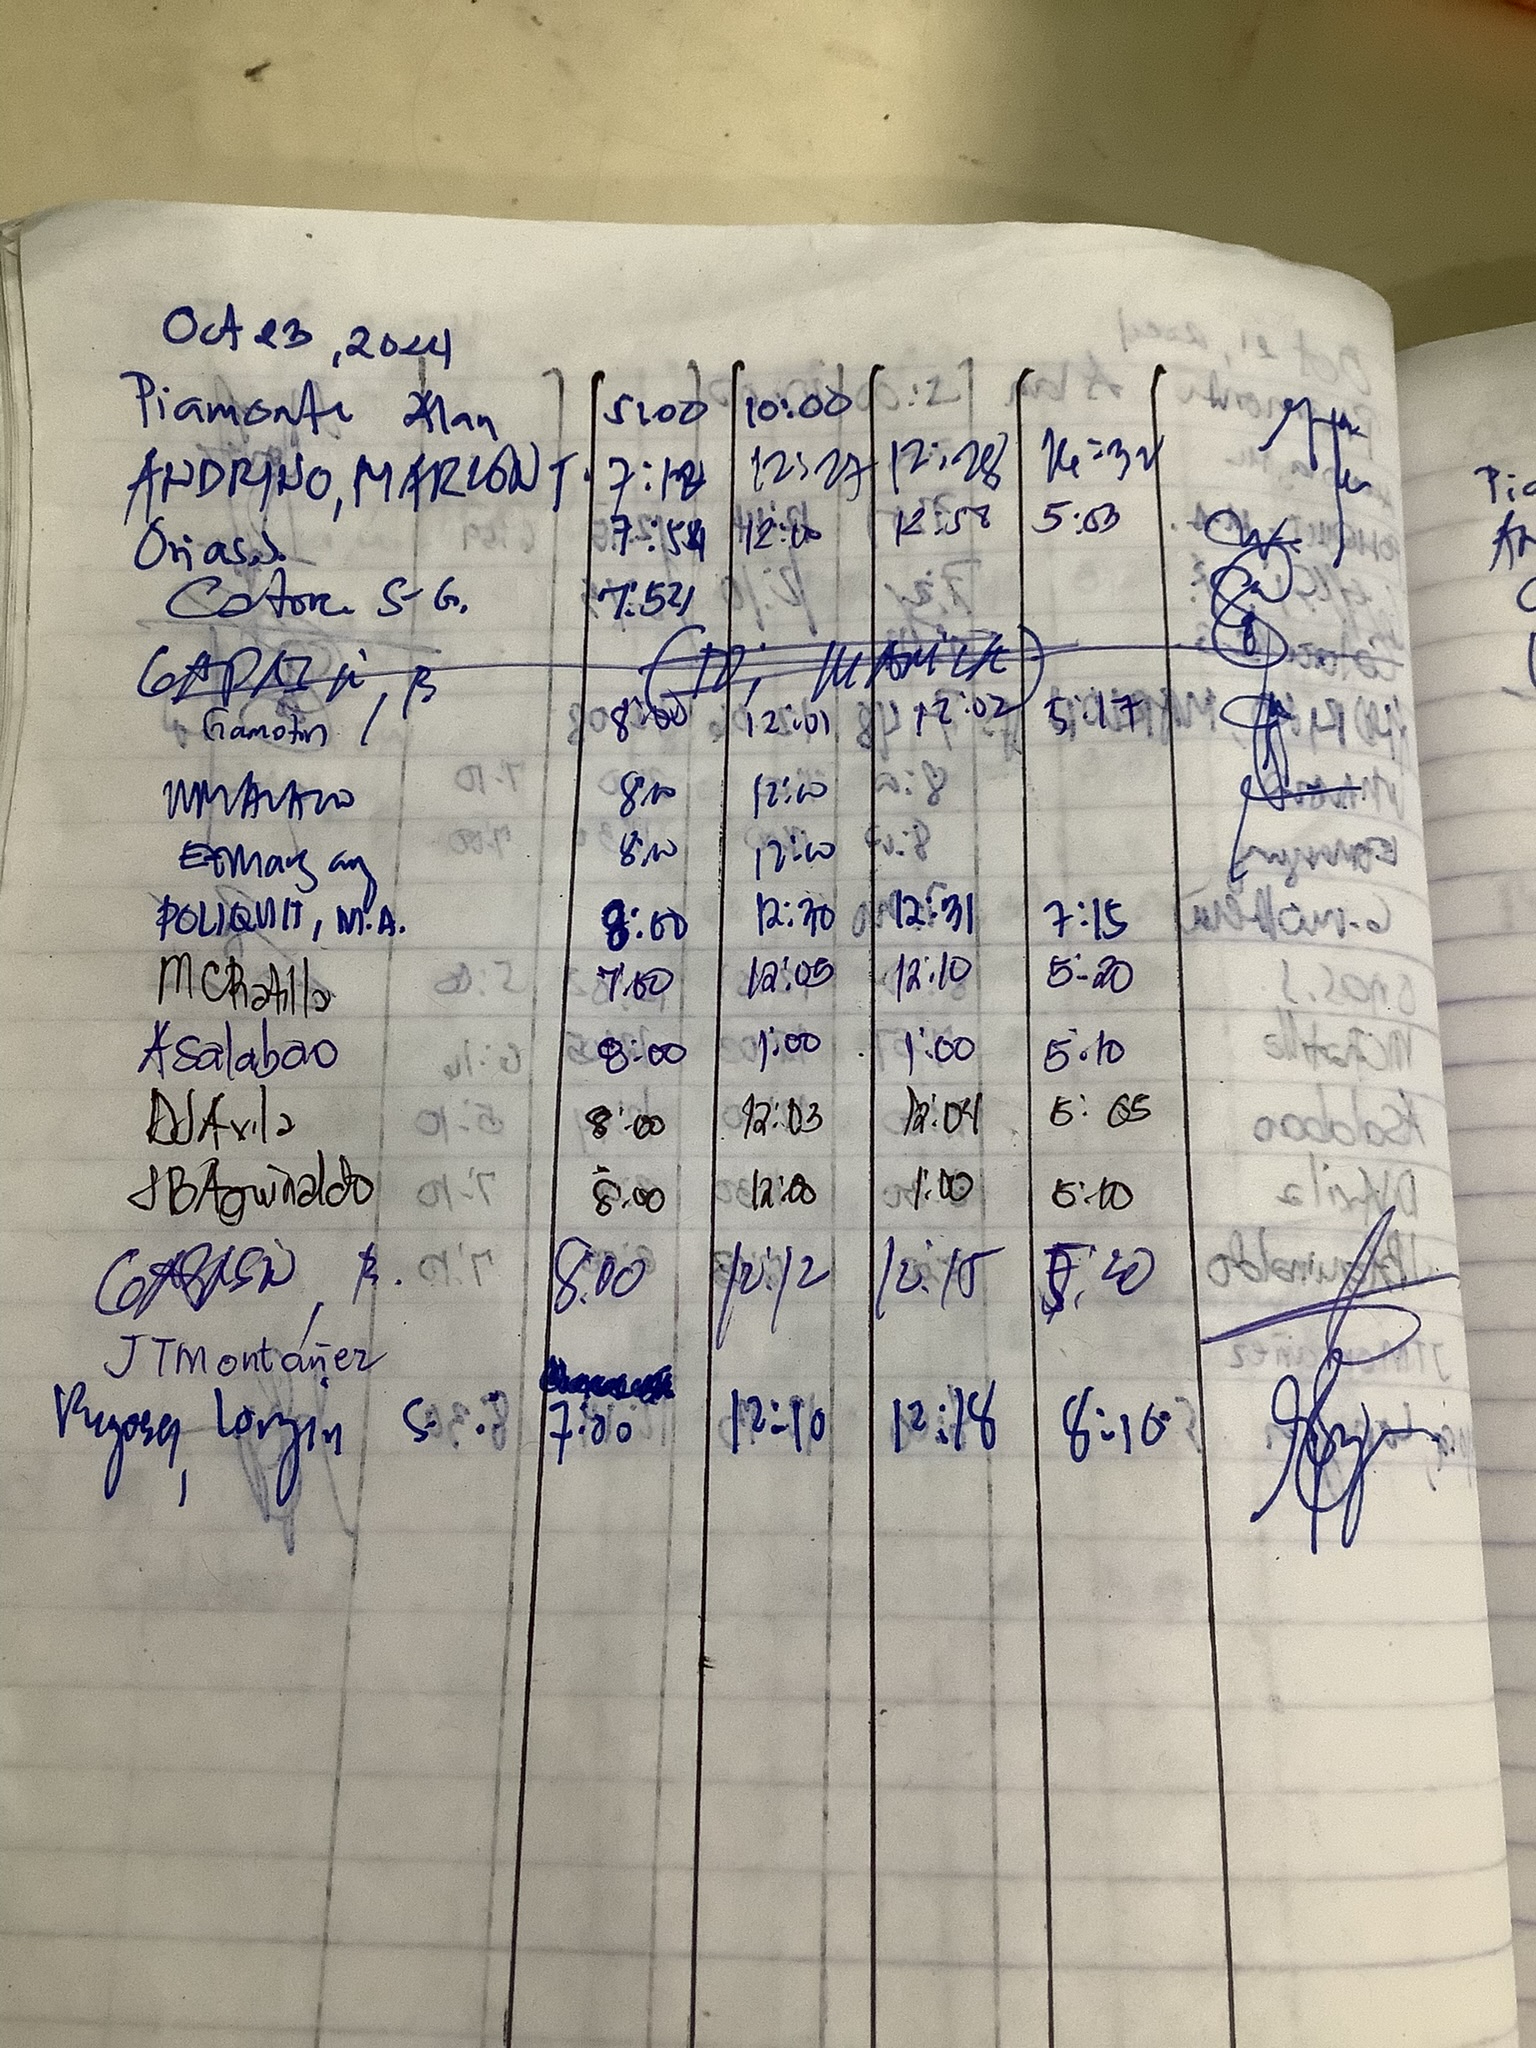 Oct 23, 2024
Piamonte Alan 5:00 10:00
ANDRINO, MARLON T. 7:18 12:27 12:28 16:32
Orias.J. 7:54 12:00 12:58 5:03
S-G. 7:54
Gamotin / 8:00 12:01 12:02 5:17
8:00 12:00
8:00 12:00
POLIQUIT, M.A. 8:00 12:30 12:31 7:15
MCRatilla 7:50 12:05 12:10 5:20
ASalabao 8:00 1:00 1:00 5:10
DJAvila 8:00 12:03 12:04 5:05
JBAguinaldo 8:00 12:00 1:00 5:10
8:00 12:12 12:15 5:20
JTMontáñez
Lorgin S. 7:00 12:10 12:18 8:10